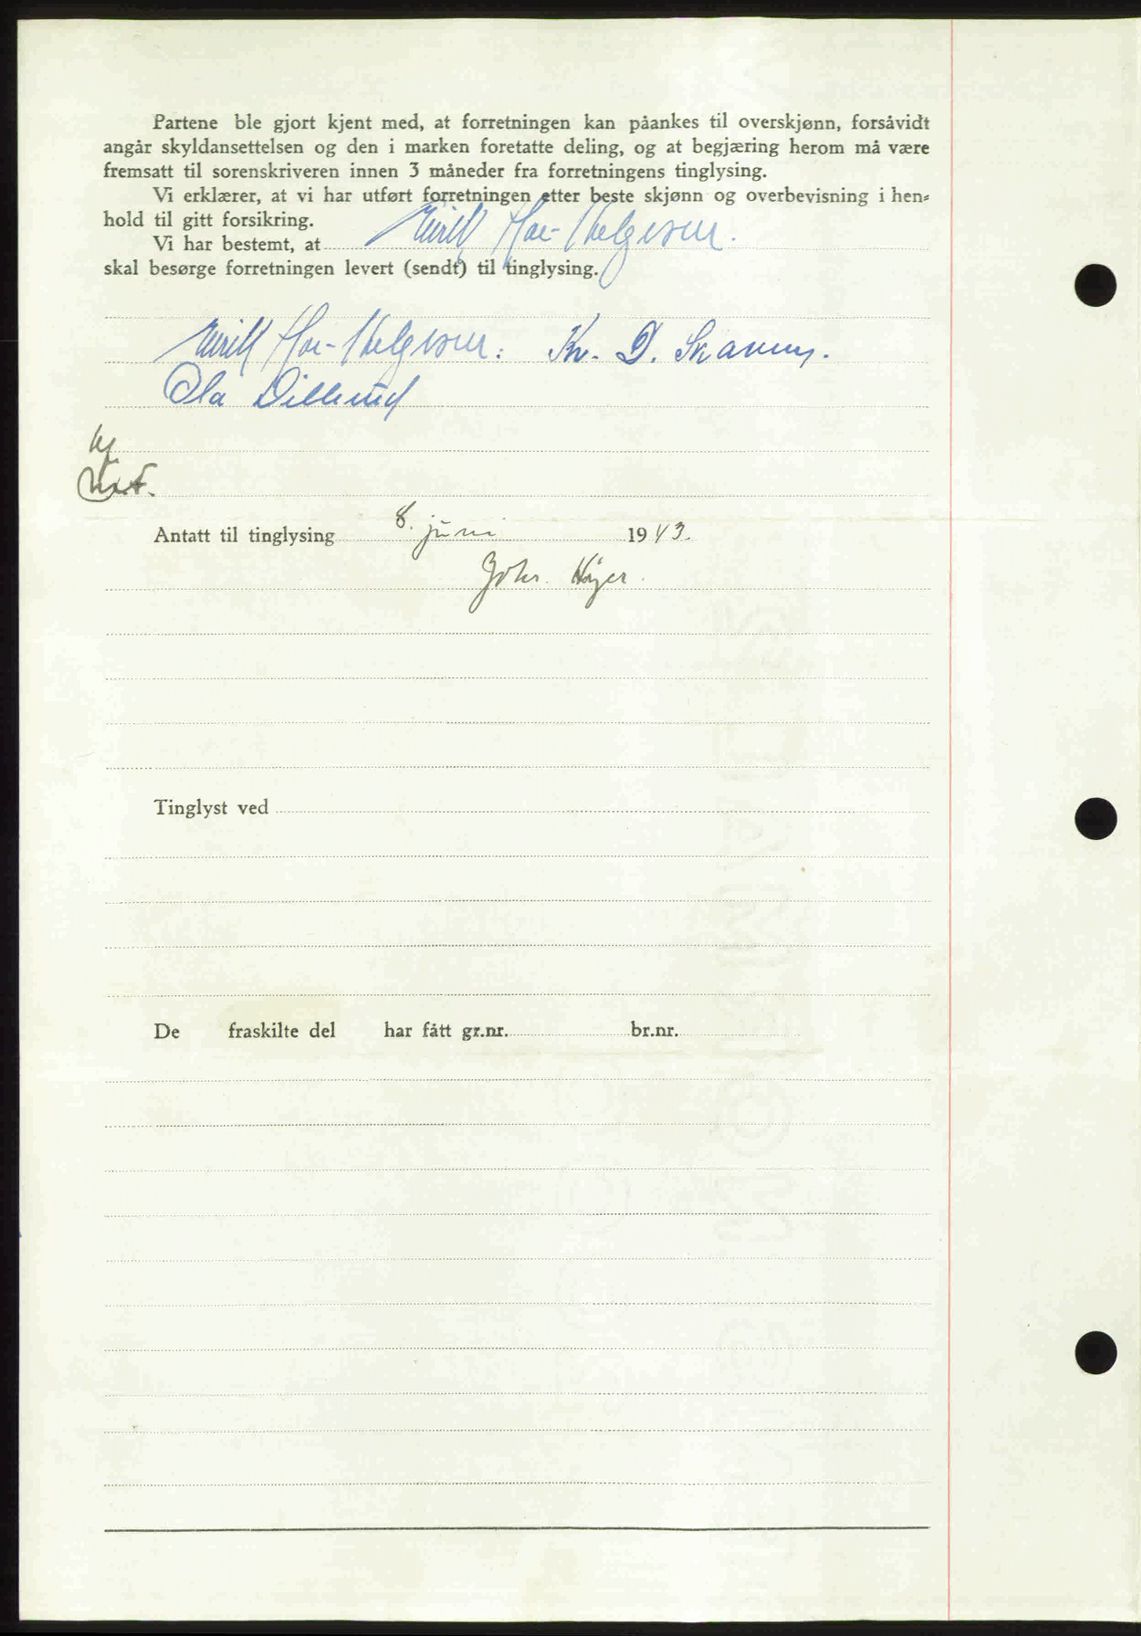 Partene ble gjort kjent med, at forretningen kan påankes til overskjønn, forsåvidt
angår skyldansettelsen og den i marken foretatte deling, og at begjæring herom må være
fremsatt til sorenskriveren innen 3 måneder fra forretningens tinglysing.
Vi erklærer, at vi har utført forretningen etter beste skjønn og overbevisning i hen-
hold til gitt forsikring.
Vi har bestemt, at Eirill Hoe-Helgesen.
skal besørge forretningen levert (sendt) til tinglysing.
Eirill Hoe-Helgesen. Kr. D.
Ola Dillerud
Antatt til tinglysing 8. juni 1943.
Johs.
Tinglyst ved
De fraskilte del har fått gr.nr. br.nr.